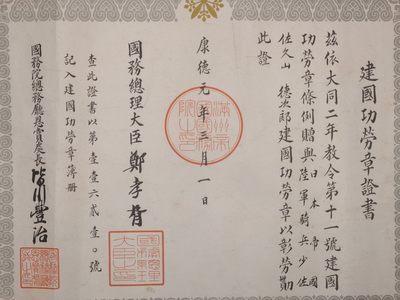 建國功勞章證書
茲依大同二年敎令第十一號建國
功勞章條例贈與日本帝國陸軍騎兵少佐
佐久山德次郎建國功勞章以彰勞勩
此證
康德元年三月一日
國務總理大臣鄭孝胥
查此證書以第壹壹六貳壹〇號
記入建國功勞章簿册
國務院總務廳恩賞處長皆川豐治